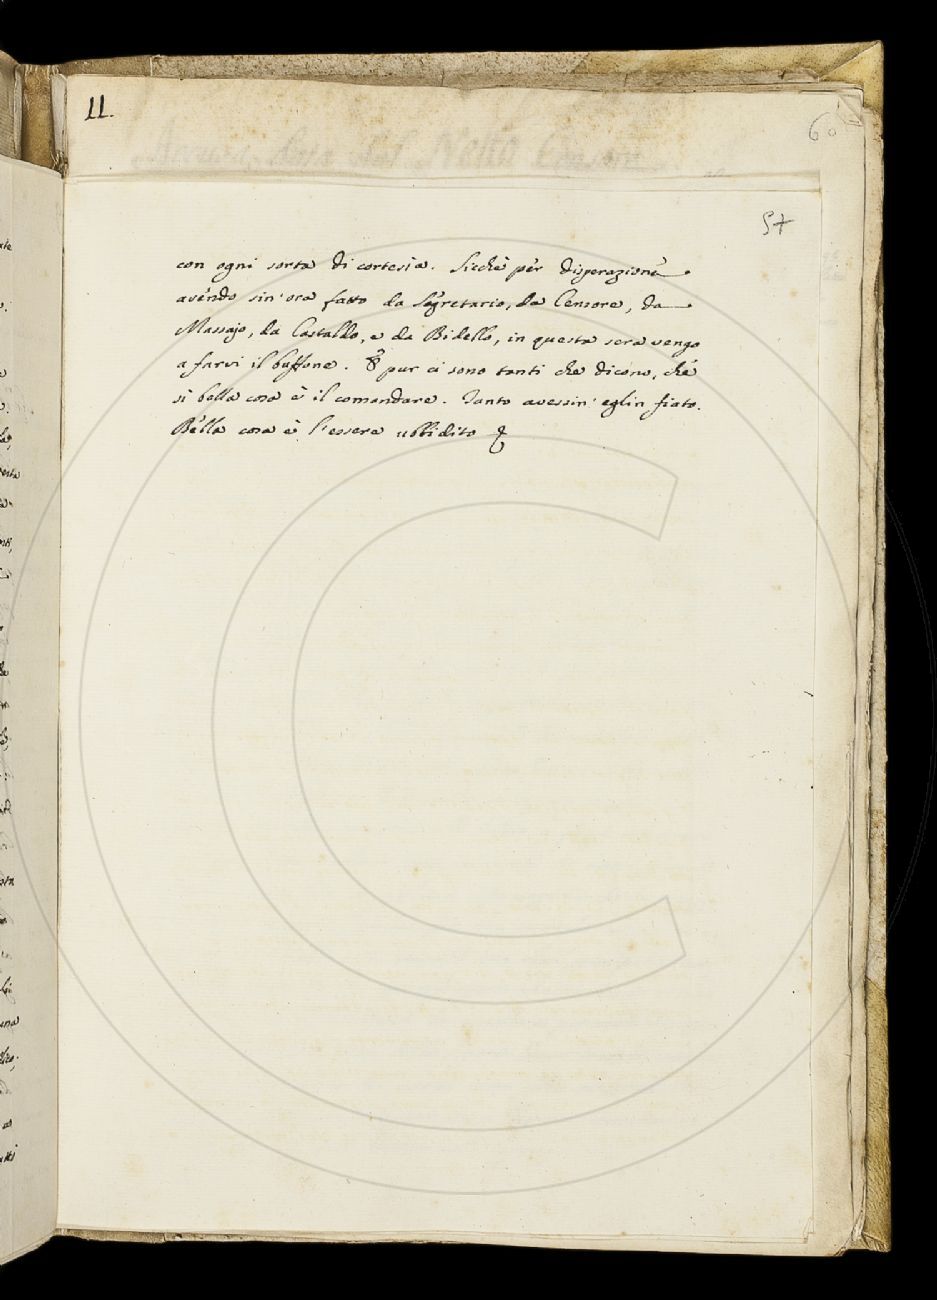 11.
60
57
con ogni sorta di cortesia. Sicchè per disperazione
avendo sin'ora fatto da Segretario, da Censore, da
Massajo, da Castaldo, e da Bidello, in questa sera vengo
a farvi il buffone. E pur ci sono tanti che dicono, che
si bella cosa è il comandare. Tanto avessin'eglin fiato.
Bella cosa è l'essere ubbidito